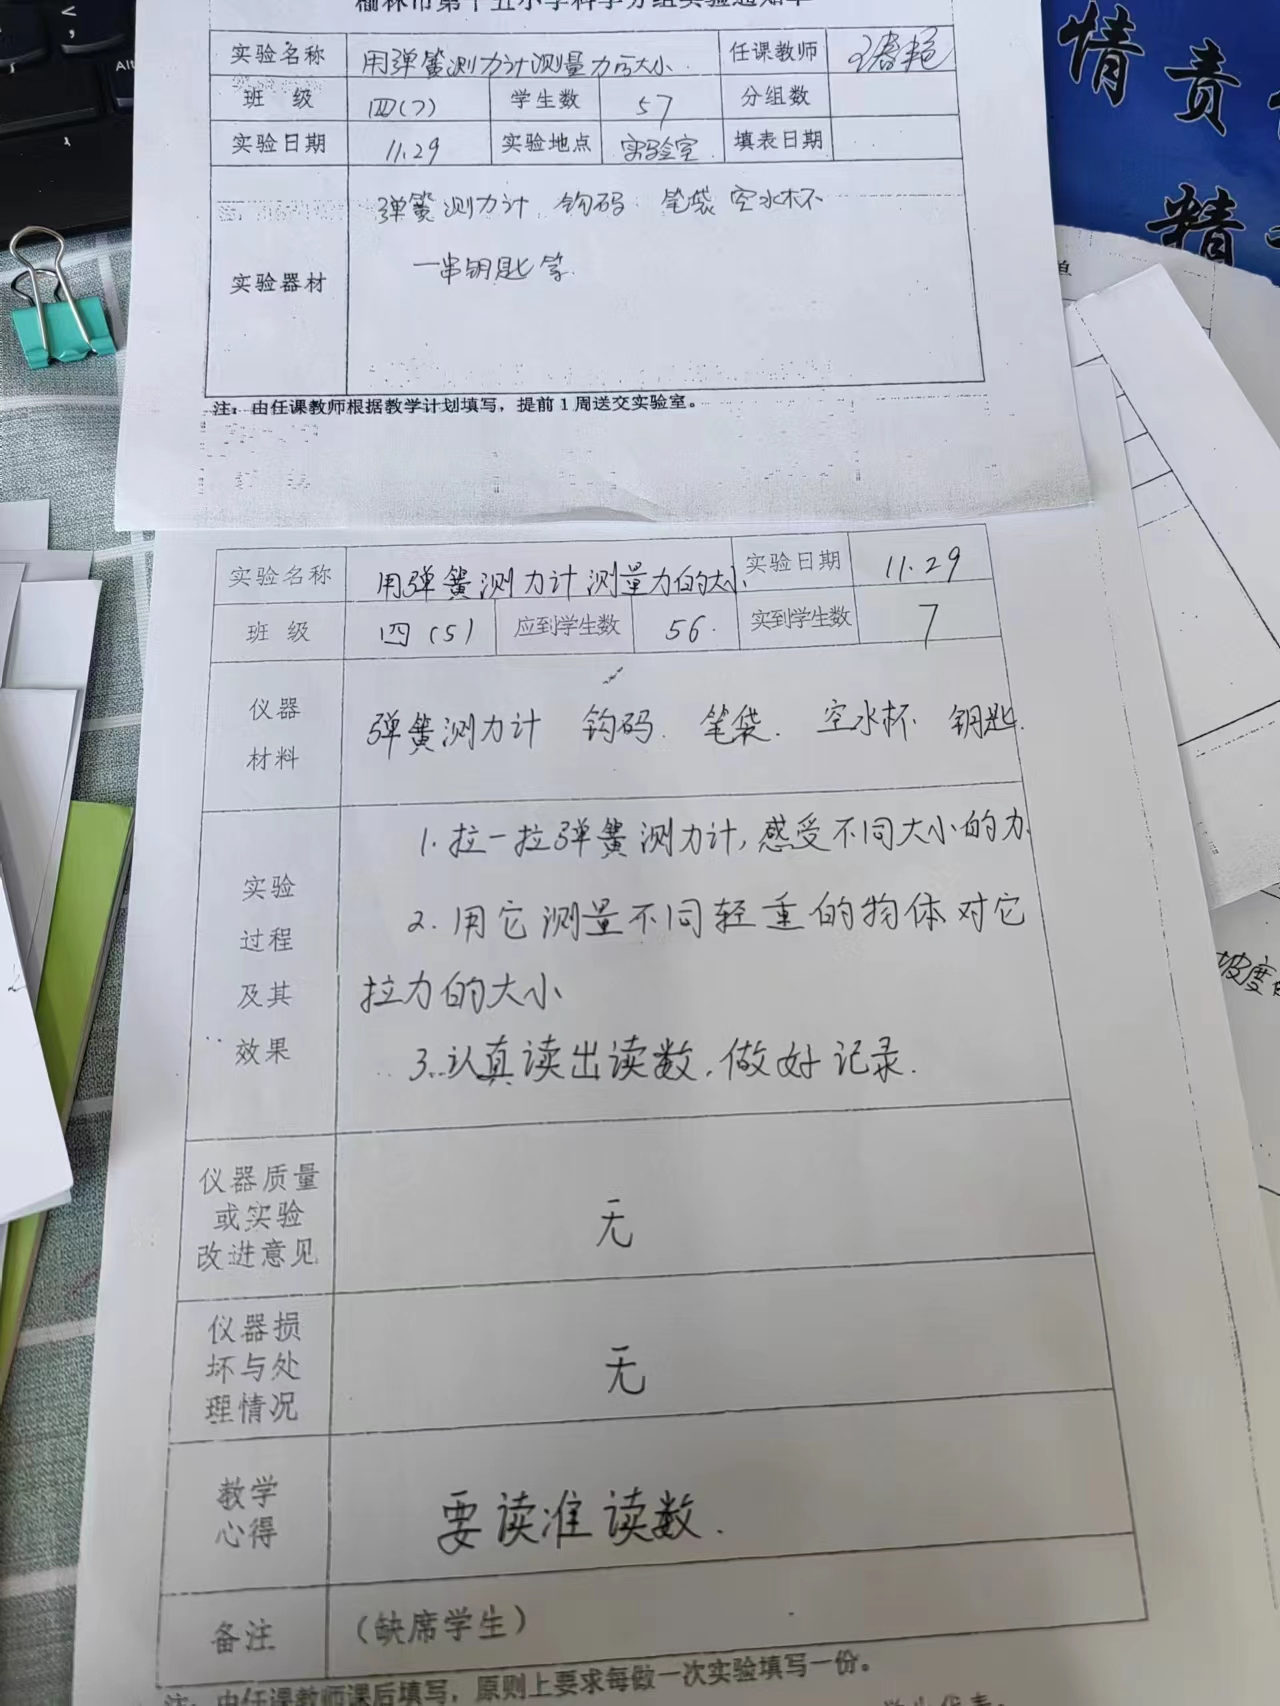 榆林市第十五小学科学分组实验通知单
实验名称 用弹簧测力计测量力的大小 任课教师
班 级 四(7) 学生数 57 分组数
实验日期 11.29 实验地点 实验室 填表日期
实验器材 弹簧测力计 钩码 笔袋 空水杯
一串钥匙等
注：由任课教师根据教学计划填写，提前1周送交实验室。
实验名称 用弹簧测力计测量力的大小 实验日期 11.29
班 级 四(5) 应到学生数 56. 实到学生数 7
仪器
材料
弹簧测力计 钩码. 笔袋. 空水杯 钥匙.
实验
过程
及其
效果
1.拉一拉弹簧测力计,感受不同大小的力.
2.用它测量不同轻重的物体对它
拉力的大小
3.认真读出读数,做好记录.
仪器质量
或实验
改进意见
无
仪器损
坏与处
理情况
无
教学
心得
要读准读数.
备注 (缺席学生)
注：由任课教师课后填写，原则上要求每做一次实验填写一份。
学生代表:
情 责
精
单
坡度
Alt